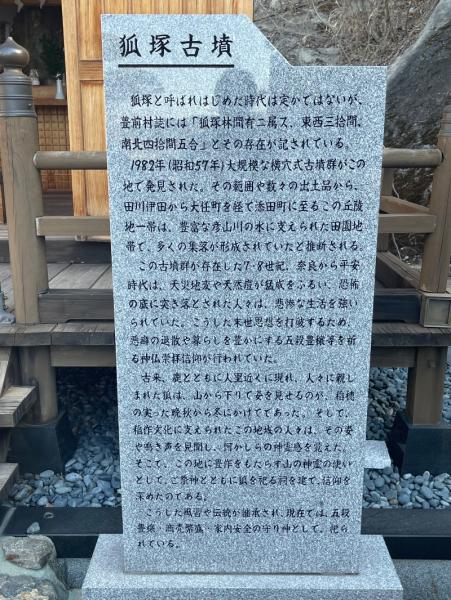 狐塚古墳
狐塚と呼ばれはじめた時代は定かではないが、
豊前村誌には「狐塚林間有ニ属ス、東西三拾間、
南北四拾間五合」とその存在が記されている。
1982年(昭和57年)大規模な横穴式古墳群がこの
地で発見された。その範囲や数々の出土品から、
田川伊田から大任町を経て添田町に至るこの丘陵
地一帯は、豊富な彦山川の水に支えられた田園地
帯で、多くの集落が形成されていたと推断される。
この古墳群が存在した7・8世紀、奈良から平安
時代は、天災地変や天然痘が猛威をふるい、恐怖
の底に突き落とされた人々は、悲惨な生活を強い
られていた。こうした末世思想を打破するため、
悪癖の退散と暮らしを豊かにする五穀豊穣等を祈
る神仏崇拝信仰が行われていた。
古来、鹿とともに人里近くに現れ、人々に親し
まれた狐は、山から下りて姿を見せるのが、稲穂
の実った晩秋から冬にかけてであった。そして、
稲作文化に支えられたこの地域の人々は、その姿
や鳴き声を見聞し、何かしらの神霊感を覚えた。
そこで、この地に豊作をもたらす山の神霊の使い
として、ご祭神とともに狐を祀る祠を建て、信仰を
深めたのである。
こうした風習や伝統が継承され、現在では、五穀
豊穣・商売繁盛・家内安全の守り神として、祀ら
れている。